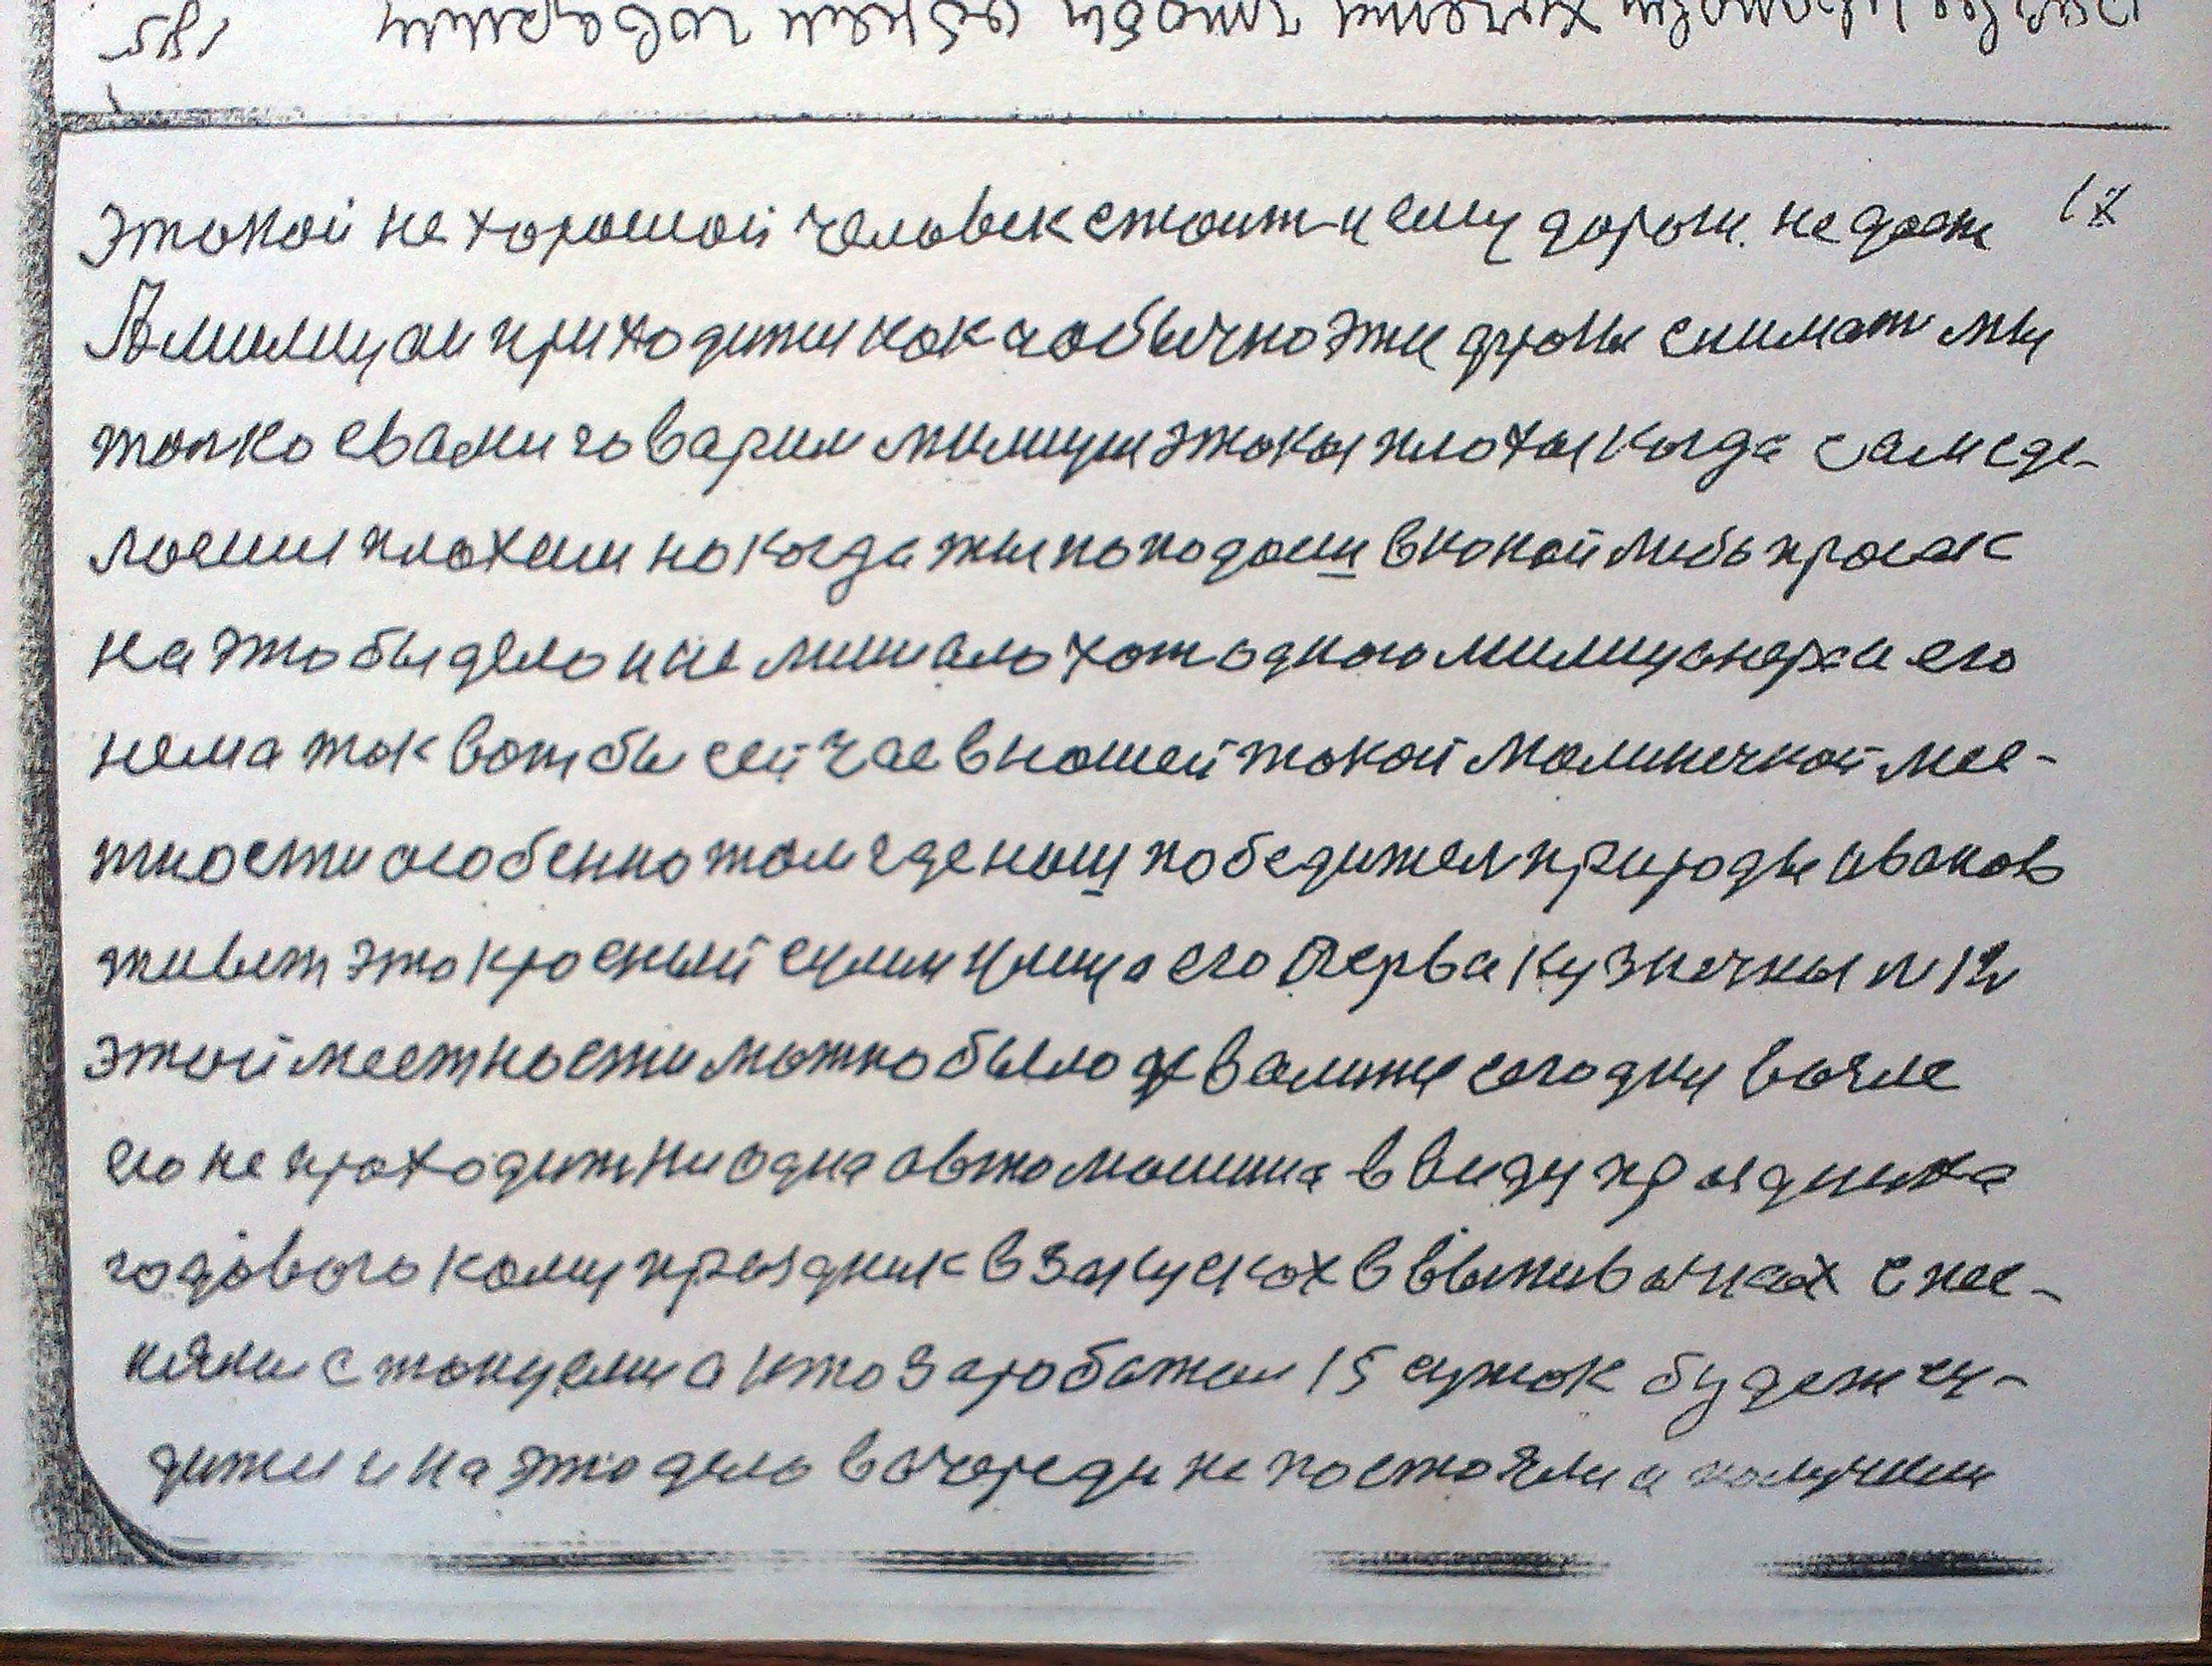 17
этокой не хорошой человек стоит и ему дороги. не дает
А милицаи приходится как и обычно эти дроги снимат мы
толко свами говарим милицыи этокы плохыи когда сам сде-
лоеши плохои но когда ты поподаеш вкокой либь просак
на это бы дело и не мишало хот одного милицонера а его
нема ток вот бы сейчас внашей токой Молинечкой мес-
тности особенно том где нош победител природы иванов
живет это кросный сулин улица его перва кузнечны N 12
этой местности можно было хвалитс сегодни возле
его не проходит ни одна автомошина ввиду празднека
годового кому праздник в закусках в выпивонках с пес-
нями с тонцами а кто заработал 15 суток будет су-
дитси и на это дело в очереди не постояли а получили